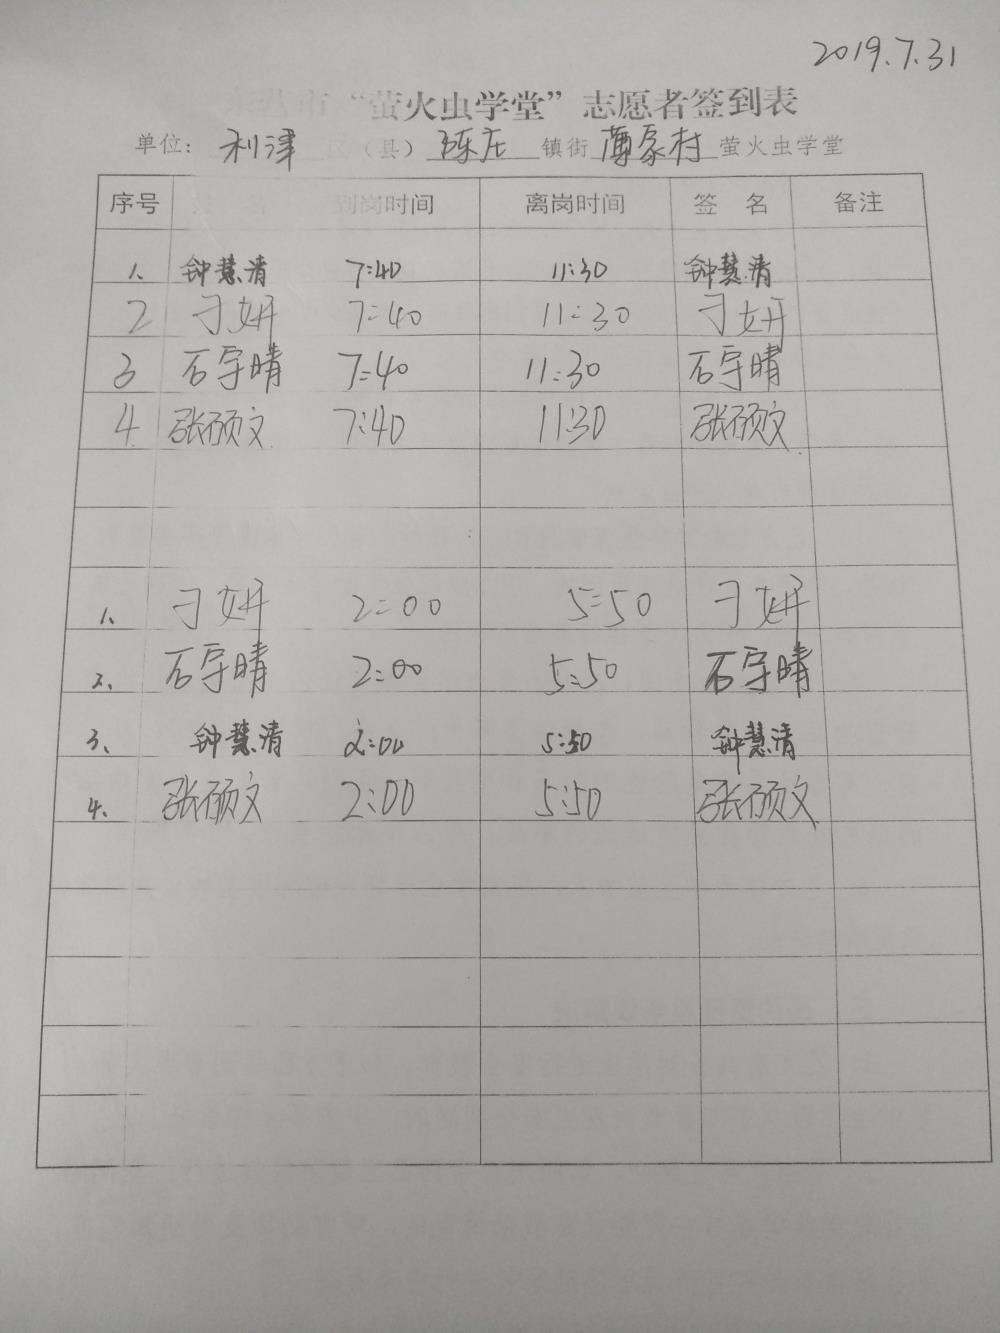 2019.7.31
市“萤火虫学堂”志愿者签到表
单位：利津区（县）陈庄镇街薄家村萤火虫学堂
序号 姓名 到岗时间 离岗时间 签名 备注
1、 钟慧清 7:40 11:30 钟慧清
2 刁妍 7:40 11:30 刁妍
3 石宇晴 7:40 11:30 石宇晴
4 张硕文 7:40 11:30 张硕文
1、 刁妍 2:00 5:50 刁妍
2、 石宇晴 2:00 5:50 石宇晴
3、 钟慧清 2:00 5:50 钟慧清
4、 张硕文 2:00 5:50 张硕文